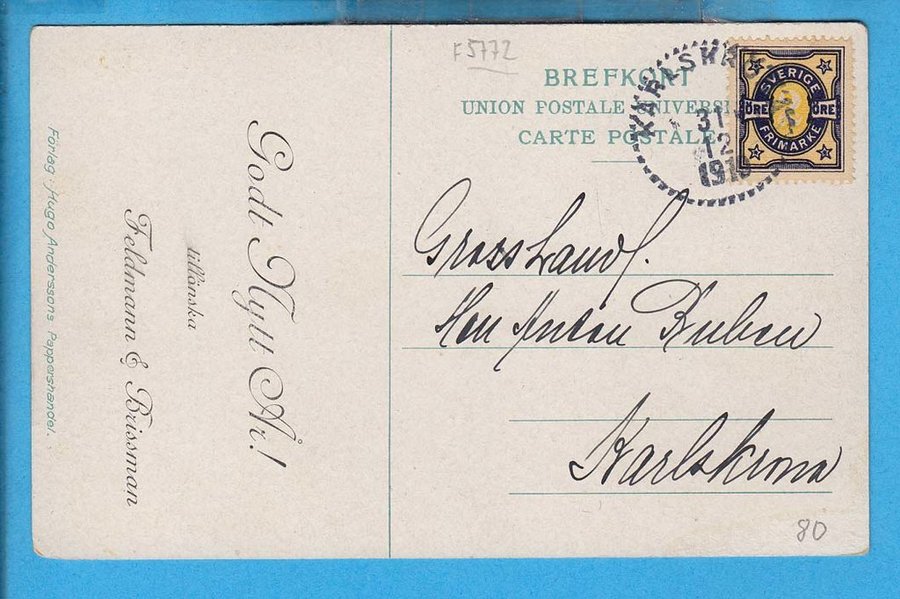 F 5772
BREFKORT
UNION POSTALE UNIVERS
CARTE POSTALE
KARLSKR
31
12
191
SVERIGE
ÖRE ÖRE
FRIMÄRKE
Grosshandl.
Herr Anton Ruben
Karlskrona
80
Godt Nytt År!
tillönska
Feldmann & Brissman
Förlag: Hugo Anderssons Pappershandel.